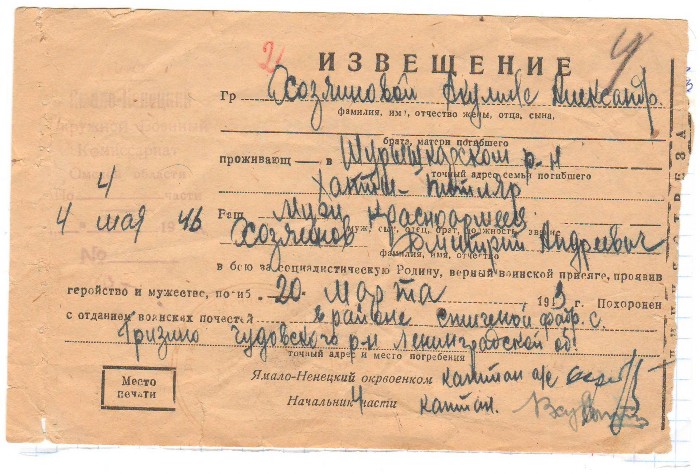 ИЗВЕЩЕНИЕ
Гр Хозяиновой Акулине Александр.
фамилия, имя, отчество жены, отца, сына,
брата, матери погибшего
проживающ — в Шурышкарском р-н
точный адрес семьи погибшего
4 мая 46
Ваш Муж Красноармеец
муж, сын, отец, брат, должность, звание
Хозяинов Дмитрий Андреевич
фамилия, имя, отчество
в бою за социалистическую Родину, верный воинской присяге, проявив
геройство и мужество, погиб 20 марта 19 3 г. Похоронен
с отданием воинских почестей в районе спичечной фабр. с.
Грузино Чудовского р-н Ленинградской об
точный адрес и место погребения
Место
печати
Ямало-Ненецкий окрвоенком капитан а/с
Начальник 4 части капитан.